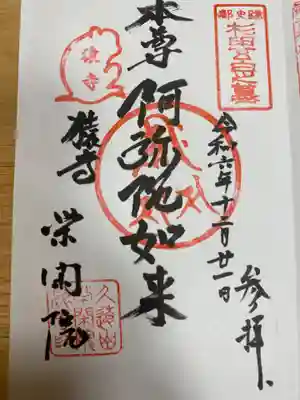 都史跡
杉田玄白墓
参拝
令和六年十二月廿一日
本尊 阿弥陀如来
猿寺
猿寺
栄閑院
久遠山